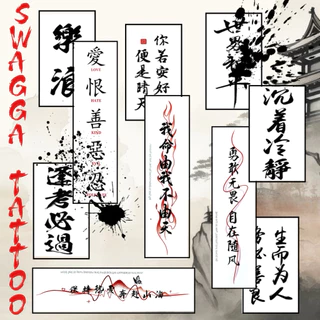 SWAGGA TATTOO
樂浪
愛恨善惡忍
LOVE
HATE
你若安好
便是晴天
世界和平
沉着冷靜
逢考必過
我命由我不由天
勇敢无畏
自在随风
生而为人
务必善良